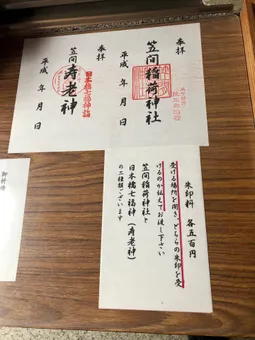 奉拝
笠間稲荷神社
平成 年 月 日
奉拝
日本橋七福神詣
笠間 寿老神
平成 年 月 日
朱印料 各五百円
受ける場所を聞き、どちらの朱印を受
けるのか伝えてお渡し下さい
笠間稲荷神社と
日本橋七福神(寿老神)
の二種類ございます